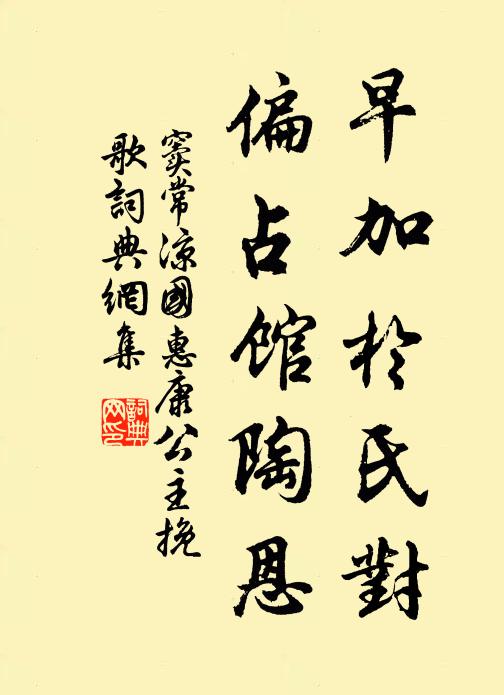 早加於氏對
偏占馆陶恩
窦常凉國惠康公主挽
歌詞典網集
詞典
网印